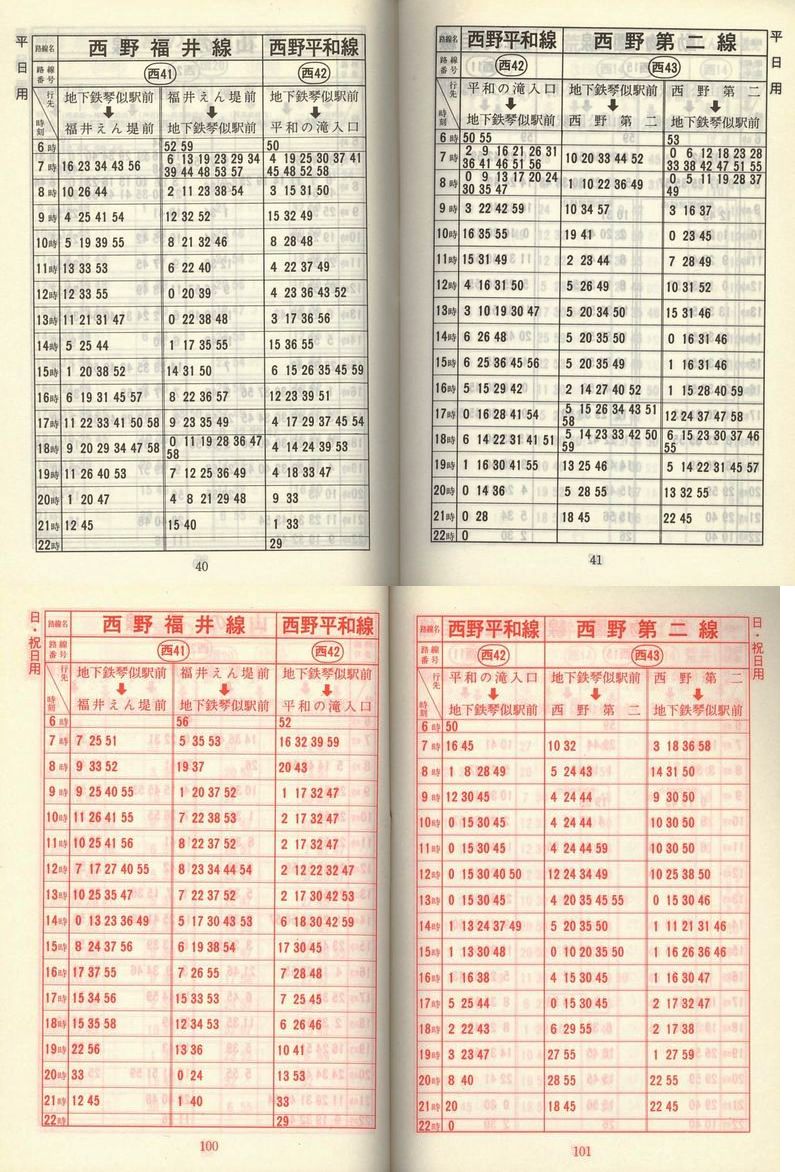 平日用
路線名 西野福井線 西野平和線
路線番号 西41 西42
行先 時刻 地下鉄琴似駅前 ⬇ 福井えん堤前 福井えん堤前 ⬇ 地下鉄琴似駅前 地下鉄琴似駅前 ⬇ 平和の滝入口
6時 52 59 50
7時 16 23 34 43 56 6 13 19 23 29 34 39 44 48 53 57 4 19 25 30 37 41 45 48 52 58
8時 10 26 44 2 11 23 38 54 3 15 31 50
9時 4 25 41 54 12 32 52 15 32 49
10時 5 19 39 55 8 21 32 46 8 28 48
11時 13 33 53 6 22 40 4 22 37 49
12時 12 33 55 0 20 39 4 23 36 43 52
13時 11 21 31 47 0 22 38 48 3 17 36 56
14時 5 25 44 1 17 35 55 15 36 55
15時 1 20 38 52 14 31 50 6 15 26 35 45 59
16時 6 19 31 45 57 8 22 36 57 12 23 39 51
17時 11 22 33 41 50 58 9 23 35 49 4 17 29 37 45 54
18時 9 20 29 34 47 58 0 11 19 28 36 47 58 4 14 24 39 53
19時 11 26 40 53 7 12 25 36 49 4 18 33 47
20時 1 20 47 4 8 21 29 48 9 33
21時 12 45 15 40 1 33
22時 29
40
平日用
路線名 西野平和線 西野第二線
路線番号 西42 西43
行先 時刻 平和の滝入口 ⬇ 地下鉄琴似駅前 地下鉄琴似駅前 ⬇ 西野第二 西野第二 ⬇ 地下鉄琴似駅前
6時 50 55 53
7時 2 9 16 21 26 31 36 41 46 51 56 10 20 33 44 52 0 6 12 18 23 28 33 38 42 47 51 55
8時 0 9 13 17 20 24 30 35 47 1 10 22 36 49 0 5 11 19 28 37 49
9時 3 22 42 59 10 34 57 3 16 37
10時 16 35 55 19 41 0 23 45
11時 15 31 49 2 23 44 7 28 49
12時 4 16 31 50 5 26 49 10 31 52
13時 3 10 19 30 47 5 20 34 50 15 31 46
14時 6 26 48 5 20 35 50 0 16 31 46
15時 6 25 36 45 56 5 20 35 49 1 16 31 46
16時 5 15 29 42 2 14 27 40 52 1 15 28 40 59
17時 0 16 28 41 54 5 15 26 34 43 51 58 12 24 37 47 58
18時 6 14 22 31 41 51 5 14 23 33 42 50 59 6 15 23 30 37 46 55
19時 1 16 30 41 55 13 25 46 5 14 22 31 45 57
20時 0 14 36 5 28 55 13 32 55
21時 0 28 18 45 22 45
22時 0
41
日・祝日用
路線名 西野福井線 西野平和線
路線番号 西41 西42
行先 時刻 地下鉄琴似駅前 ⬇ 福井えん堤前 福井えん堤前 ⬇ 地下鉄琴似駅前 地下鉄琴似駅前 ⬇ 平和の滝入口
6時 56 52
7時 7 25 51 5 35 53 16 32 39 59
8時 9 33 52 19 37 20 43
9時 9 25 40 55 1 20 37 52 1 17 32 47
10時 11 26 41 55 7 22 38 53 2 17 32 47
11時 10 25 41 56 8 22 37 52 2 17 32 47
12時 7 17 27 40 55 8 23 34 44 54 2 12 22 32 47
13時 10 25 35 47 7 22 37 52 2 17 30 42 53
14時 0 13 23 36 49 5 17 30 43 53 6 18 30 42 59
15時 8 24 37 56 6 19 38 54 17 30 45
16時 17 37 55 7 26 55 7 28 48
17時 15 34 56 15 33 53 7 25 45
18時 15 35 58 12 34 53 6 26 46
19時 22 56 13 36 10 41
20時 33 0 24 13 53
21時 12 45 1 40 33
22時 29
100
日・祝日用
路線名 西野平和線 西野第二線
路線番号 西42 西43
行先 時刻 平和の滝入口 ⬇ 地下鉄琴似駅前 地下鉄琴似駅前 ⬇ 西野第二 西野第二 ⬇ 地下鉄琴似駅前
6時 50
7時 16 45 10 32 3 18 36 58
8時 1 8 28 49 5 24 43 14 31 50
9時 12 30 45 4 24 44 9 30 50
10時 0 15 30 45 4 24 44 10 30 50
11時 0 15 30 45 4 24 44 59 10 30 50
12時 0 15 30 40 50 12 24 34 49 10 25 38 50
13時 0 15 30 45 4 20 35 45 55 0 15 30 46
14時 1 13 24 37 49 5 20 35 50 1 11 21 31 46
15時 1 13 30 48 0 10 20 35 50 1 16 26 36 46
16時 1 16 38 4 15 30 45 1 16 30 47
17時 5 25 44 0 15 30 45 2 17 32 47
18時 2 22 43 6 29 55 2 17 38
19時 3 23 47 27 55 1 27 59
20時 8 40 28 55 22 55
21時 20 18 45 22 45
22時 0
101